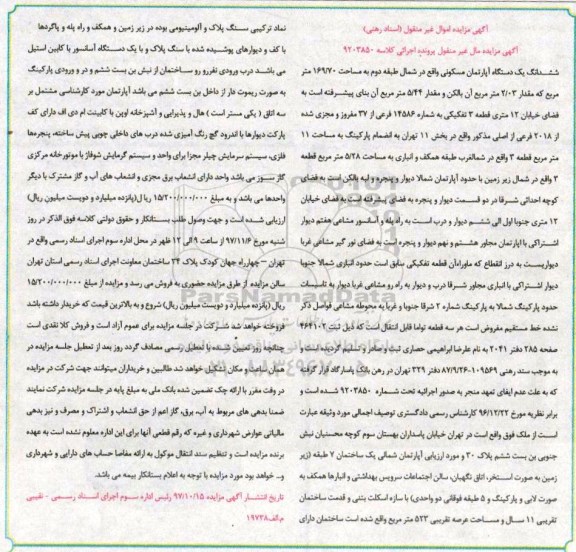 آگهی مزایده اموال غیر منقول (اسناد رهنی)
آگهی مزایده مال غیر منقول پرونده اجرائی کلاسه ۹۲۰۳۸۵۰
ششدانگ یک دستگاه آپارتمان مسکونی واقع در شمال طبقه دوم به مساحت ۱۶۹/۷۰ متر
مربع که مقدار ۲/۰۳ متر مربع آن بالکن و مقدار ۵/۴۴ متر مربع آن بنای پیشرفته است به
فضای خیابان ۱۲ متری قطعه ۳ تفکیکی به شماره ۱۴۵۸۶ فرعی از ۳۷ مفروز و مجزی شده
از ۲۰۱۸ فرعی از اصلی مذکور واقع در بخش ۱۱ تهران به انضمام پارکینگ به مساحت ۱۱
متر مربع قطعه ۳ واقع در شمالغرب طبقه همکف و انباری به مساحت ۵/۲۸ متر مربع قطعه
۳ واقع در شمال زیر زمین با حدود آپارتمان شمالا دیوار و پنجره و لبه بالکن است به فضای
کوچه احداثی شرقا در دو قسمت دیوار و پنجره به فضای پیشرفته است به فضای خیابان
۱۲ متری جنوبا اول الی ششم دیوار و درب است به راه پله و آسانسور مشاعی هفتم دیوار
اشتراکی با آپارتمان مجاور هشتم و نهم دیوار و پنجره است به فضای نور گیر مشاعی غربا
دیواریست به درز انقطاع که ماوراءآن قطعه تفکیکی سابق است حدود انباری شمالا جنوبا
دیوار اشتراکی با انباری مجاور شرقا درب و دیوار به راه رو مشاعی غربا دیوار به تاسیسات
حدود پارکینگ شمالا به پارکینگ شماره ۲ شرقا جنوبا و غربا به محوطه مشاعی فواصل ذکر
نشده خط مستقیم مفروض است هر سه قطعه تواما قابل انتقال است که ذیل ثبت ۴۶۴۱۰۲
صفحه ۲۸۵ دفتر ۲۰۴۱ به نام علیرضا ابراهیمی حصاری ثبت و صادر و تسلیم گردیده است و
به موجب سند رهنی ۱۰۹۵۶۹-۸۷/۹/۲۶ دفتر ۲۲۹ تهران در رهن بانک پاسارگاد قرار گرفته
که به علت عدم ایفای تعهد منجر به صدور اجرائیه تحت شماره ۹۲۰۳۸۵۰ شده است و
برابر نظریه مورخ ۹۶/۱۲/۲۲ کارشناس رسمی دادگستری توصیف اجمالی مورد وثیقه عبارت
است از ملک فوق واقع است در تهران خیابان پاسداران بهستان سوم کوچه محسنیان نبش
جنوبی بن بست ششم پلاک ۳۰ و مورد ارزیابی آپارتمان شمالی یک ساختمان ۷ طبقه (زیر
زمین به صورت استخر، اتاق نگهبان، سالن اجتماعات سرویس بهداشتی و انبارها همکف به
صورت لابی و پارکینگ و ۵ طبقه فوقانی دو واحدی) با سازه اسکلت بتنی و قدمت ساختمان
تقریبی ۱۱ سال و مساحت عرصه تقریبی ۵۲۳ متر مربع واقع شده است ساختمان دارای
نماد ترکیبی سنگ پلاک و آلومینیومی بوده در زیر زمین و همکف و راه پله و پاگردها
با کف و دیوارهای پوشیده شده با سنگ پلاک و با یک دستگاه آسانسور با کابین استیل
می باشد درب ورودی نفررو ساختمان از نبش بن بست ششم و در ورودی پارکینگ
به صورت ریموت دار از داخل بن بست ششم می باشد آپارتمان مورد کارشناسی مشتمل بر
سه اتاق ( یکی مستر است ) هال و پذیرایی و آشپزخانه اوپن با کابینت ام دی اف دارای کف
پارکت دیوارها با اندرود گچ رنگ آمیزی شده درب های داخلی چوبی پیش ساخته، پنجره‌ها
فلزی، سیستم سرمایش چیلر مجزا برای واحد و سیستم گرمایش شوفاژ با موتورخانه مرکزی
گاز سوز می باشد واحد دارای انشعاب برق مجزی و انشعاب های آب و گاز مشترک با دیگر
واحدها می باشد و به مبلغ ۱۵/۲۰۰/۰۰۰/۰۰۰ ریال(پانزده میلیارد و دویست میلیون ریال)
ارزیابی شده است و جهت وصول طلب بستانکار و حقوق دولتی کلاسه فوق الذکر در روز
شنبه مورخ ۹۷/۱۱/۶ از ساعت ۹ الی ۱۲ ظهر در محل اداره سوم اجرای اسناد رسمی واقع در
تهران – چهارراه جهان کودک پلاک ۲۴ ساختمان معاونت اجرای اسناد رسمی استان تهران
سالن مزایده از طریق مزایده حضوری به فروش می رسد و مزایده از مبلغ ۱۵/۲۰۰/۰۰۰/۰۰۰
ریال (پانزده میلیارد و دویست میلیون ریال) شروع و به بالاترین قیمت که خریدار داشته باشد
فروخته خواهد شد شرکت در جلسه مزایده برای عموم آزاد است و فروش کلا نقدی است
چنانچه روز تعیین شده با تعطیل رسمی مصادف گردد روز بعد از تعطیل جلسه مزایده در
همان ساعت و مکان تشکیل خواهد شد طالبین و خریداران میتوانند جهت شرکت در مزایده
در وقت مقرر با ارائه چک تضمین شده بانک ملی به مبلغ پایه در جلسه مزایده شرکت نمایند
ضمنا بدهی های مربوط به آب، برق، گاز اعم از حق انشعاب و اشتراک و مصرف و نیز بدهی
مالیاتی عوارض شهرداری و غیره که رقم قطعی آنها برای این اداره معلوم نشده است به عهده
برنده مزایده است و تنظیم سند انتقال موکول به ارائه مفاصا حساب های دارایی و شهرداری
و... خواهد بود مورد مزایده با توجه به اعلام بستانکار بیمه می باشد.
تاریخ انتشار آگهی مزایده ۹۷/۱۰/۱۵ رئیس اداره سوم اجرای اسناد رسمی - نقیبی
م.الف۱۹۷۳۸
ParsNamadData